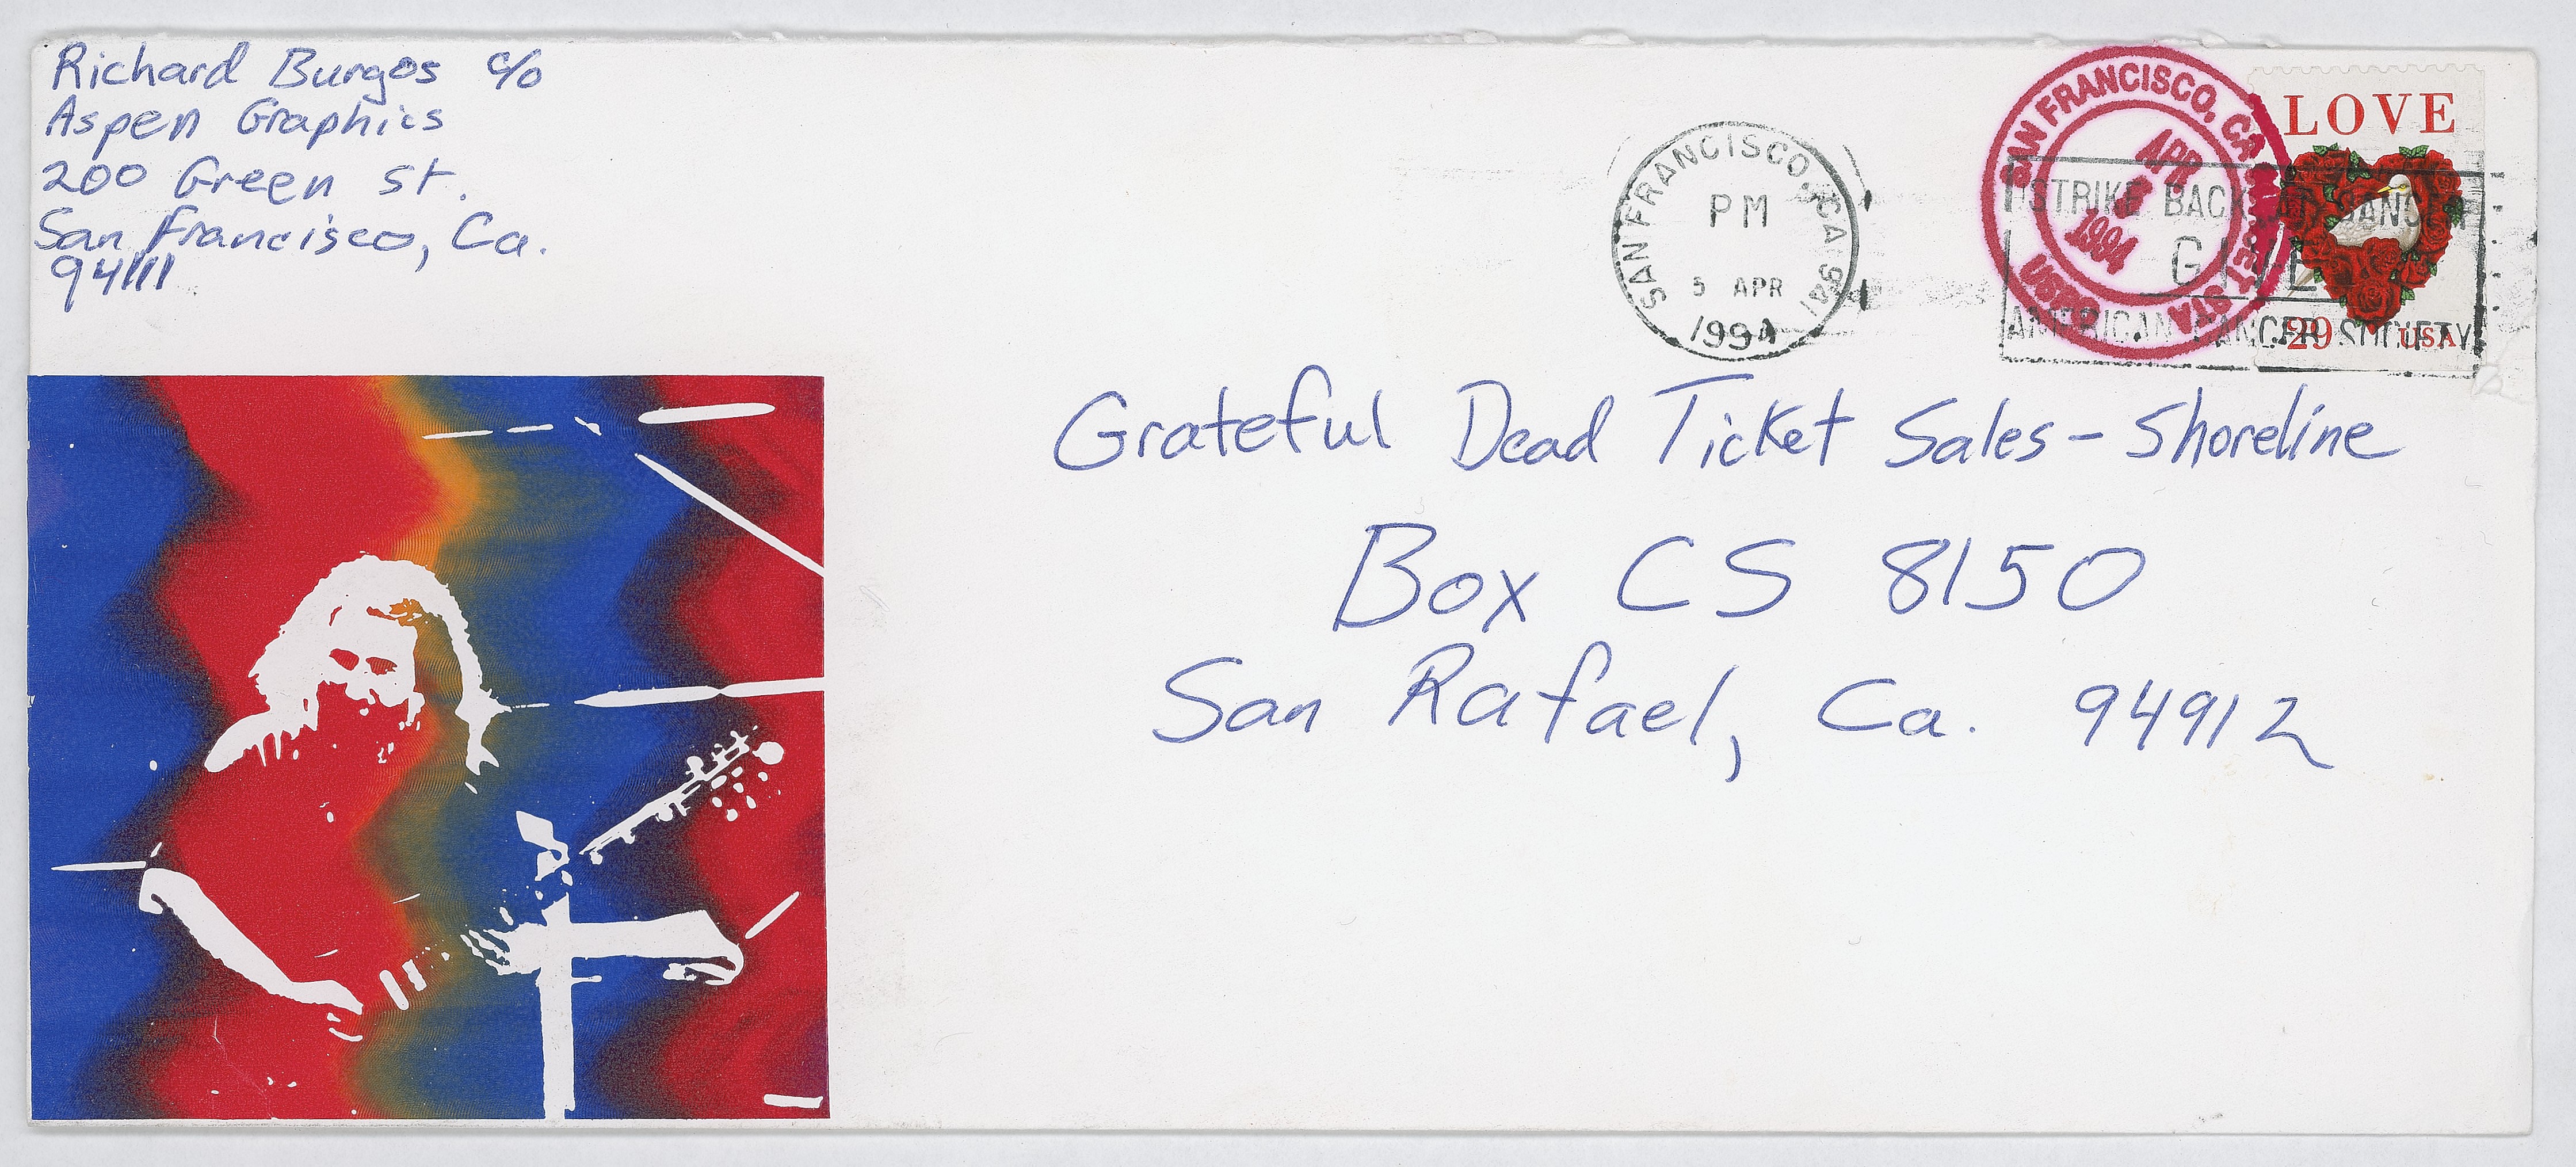 Richard Burgos c/o
Aspen Graphics
200 Green St.
San Francisco, Ca.
94111
SAN FRANCISCO, CA 941
PM
5 APR
1994
SAN FRANCISCO, CA
APR
1994
STA
USPS
LOVE
29 USA
STRIKE BACK AT CANCER
GIVE
AMERICAN CANCER SOCIETY
Grateful Dead Ticket Sales - Shoreline
Box CS 8150
San Rafael, Ca. 94912